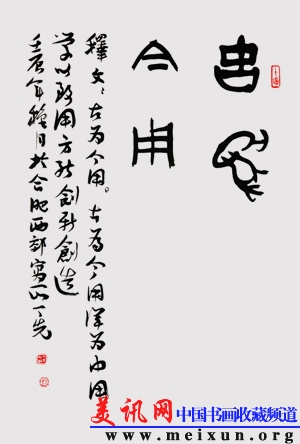 古為
今用
釋文:古为今用。古为今用洋为中用
学以致用方能創新創造
壬辰年月於合肥西郊寓所一先
美讯网 中国书画收藏频道
www.meixun.org